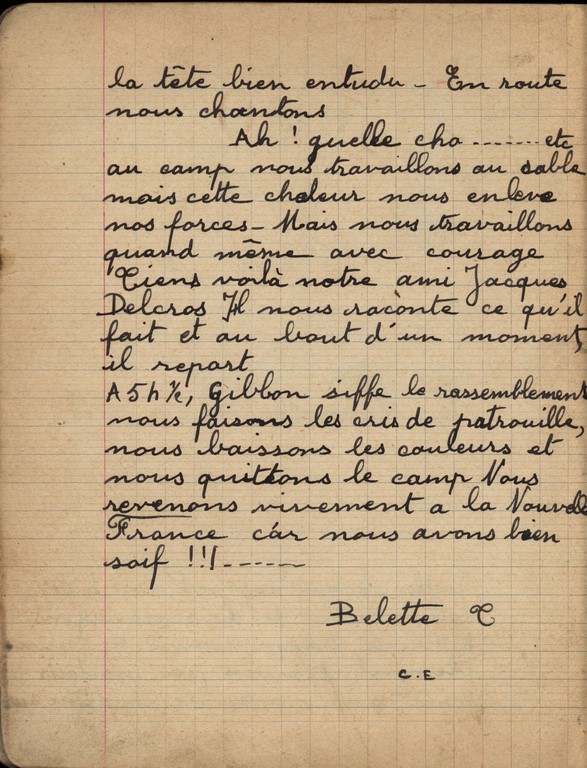 la tête bien entudu - En route
nous chantons
Ah ! quelle cha ....... etc
au camp nous travaillons au sable
mais cette chaleur nous enleve
nos forces - Mais nous travaillons
quand même avec courage
Tiens voilà notre ami Jacques
Delcros Il nous raconte ce qu'il
fait et au bout d'un moment,
il repart
A 5h ½, Gibbon siffe le rassemblement
nous faisons les cris de patrouille,
nous baissons les couleurs et
nous quittons le camp Nous
revenons vivement a la Nouvelle
France car nous avons bien
soif !!! -----
Belette T
C.E